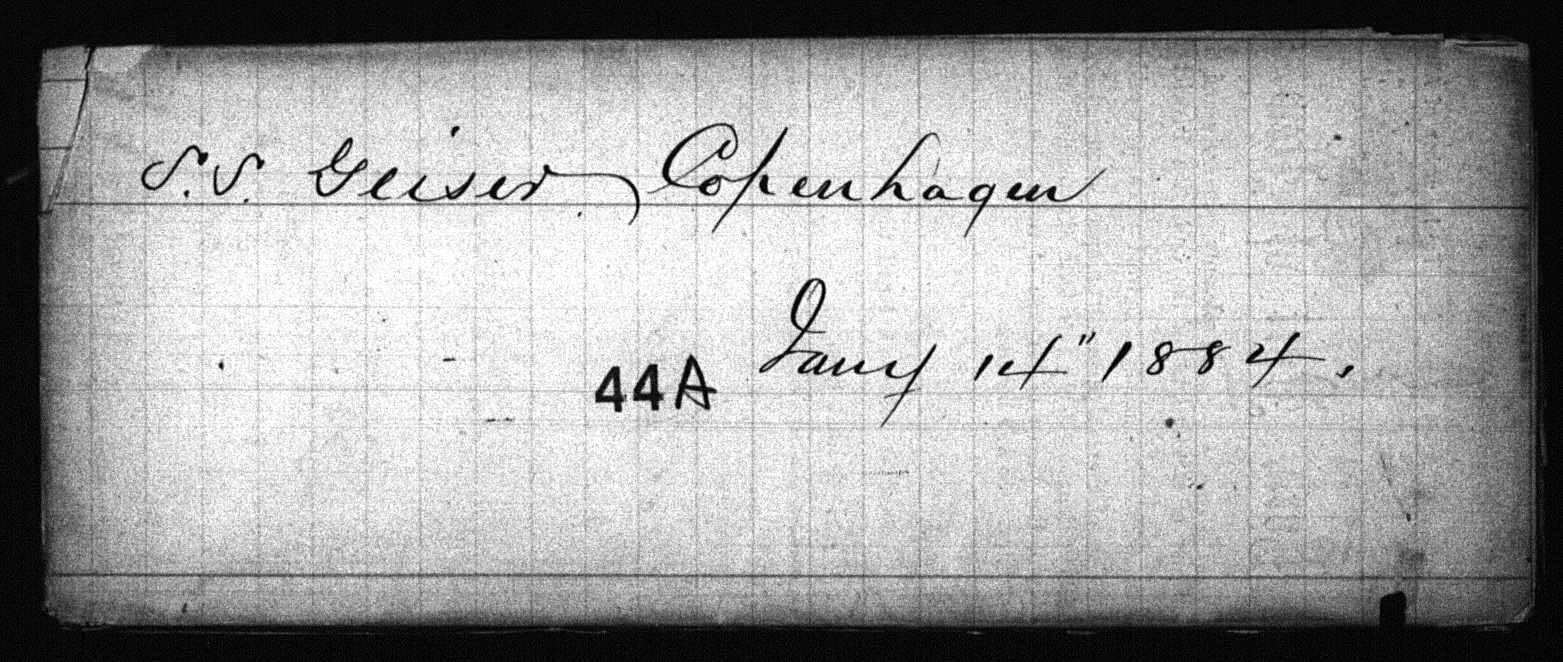 S.S. Geiser, Copenhagen
44A Jany 14" 1884.